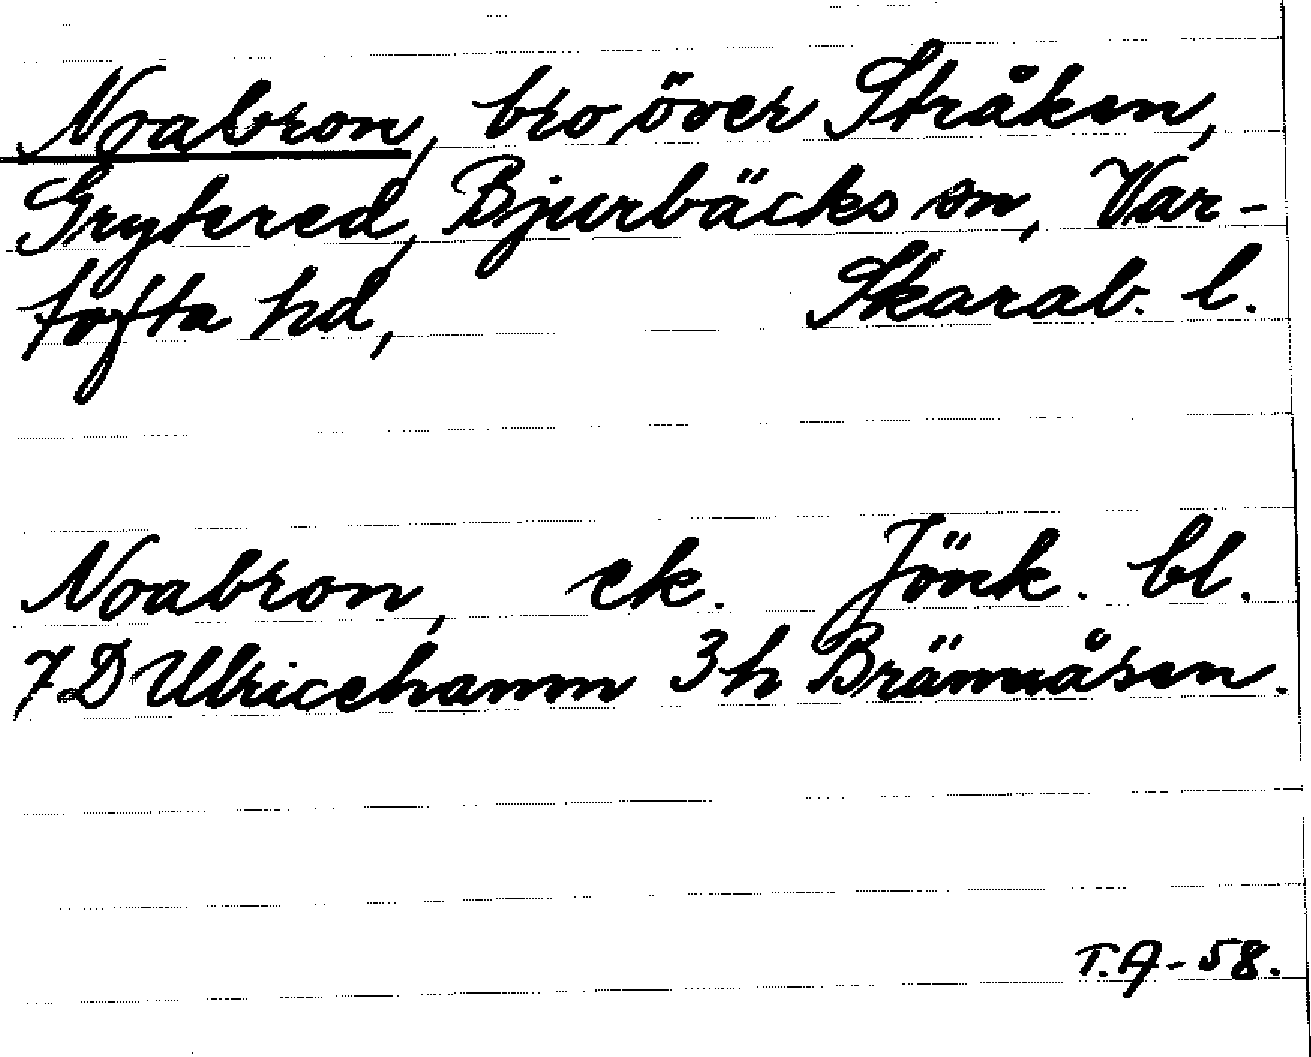 Noabron, bro över Stråken,
Grytered, Bjurbäcks sn, Var-
tofta hd, Skarab. l.
Noabron, ek. Jönk. bl.
7D Ulricehamn 3h Brännåsen.
T.A-58.